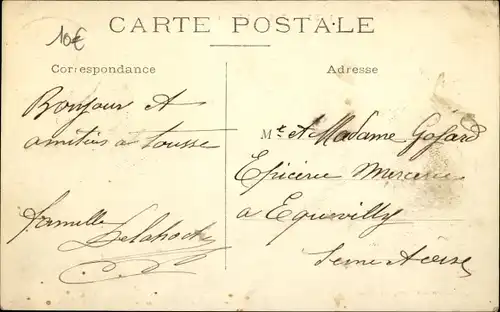 10€
CARTE POSTALE
Correspondance
Adresse
Bonjour et
amitiés a tousse
famille
Delahoche
M. et Madame Gofard
Epicerie Mercerie
a Equevilly
Seine et Oise